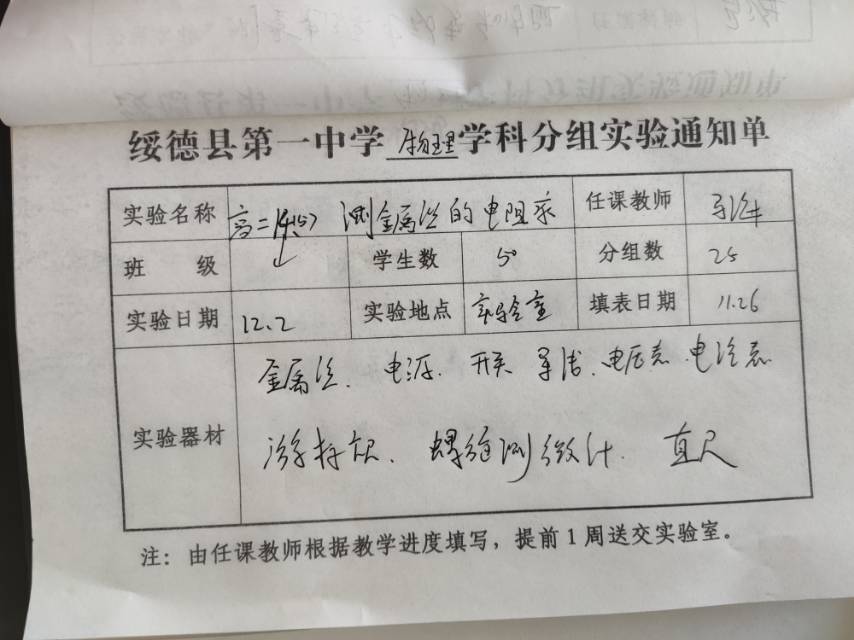 绥德县第一中学物理学科分组实验通知单
实验名称 高二 测金属丝的电阻率 任课教师
班 级 学生数 50 分组数 25
实验日期 12.2 实验地点 实验室 填表日期 11.26
金属丝、电源、开关 导线、电压表、电流表
实验器材
游标尺、螺旋测微计. 直尺
注：由任课教师根据教学进度填写，提前1周送交实验室。